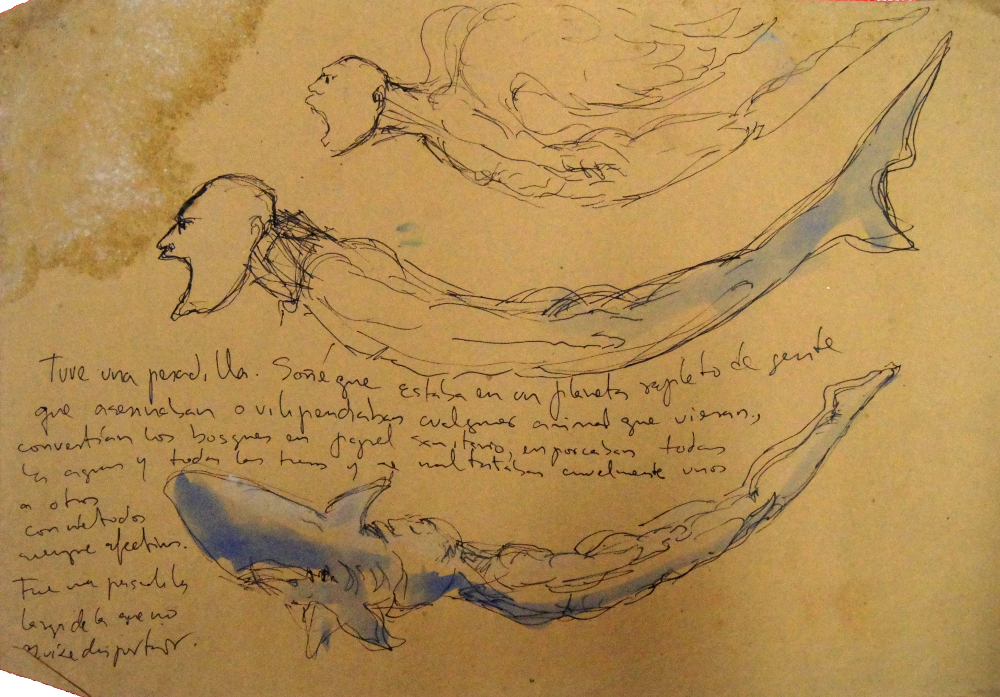 Tuve una pesadilla. Soñé que estaba en un planeta repleto de gente
que asesinaban o vilipendiaban cualquier animal que vieran,
convertían los bosques en papel sanitario, emporcaban todas
las aguas y todas las tierras y se maltrataban cruelmente unos
a otros
con métodos
siempre efectivos.
Fue una pesadilla
larga de la que no
quise despertar.